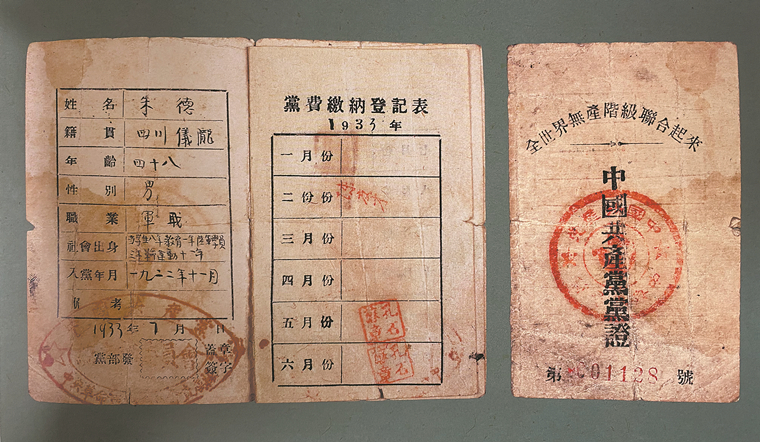 姓名 朱德
籍貫 四川儀隴
年齡 四十八
性別 男
職業 軍職
社會出身
入黨年月 一九二二年十一月
備考
1933年7月 日
黨部發
蓋章
簽字
黨費繳納登記表
1933年
一月份
二份份
三月份
四月份
五月份
六月份
全世界無產階級聯合起來
中國共產黨黨證
第 001128 號